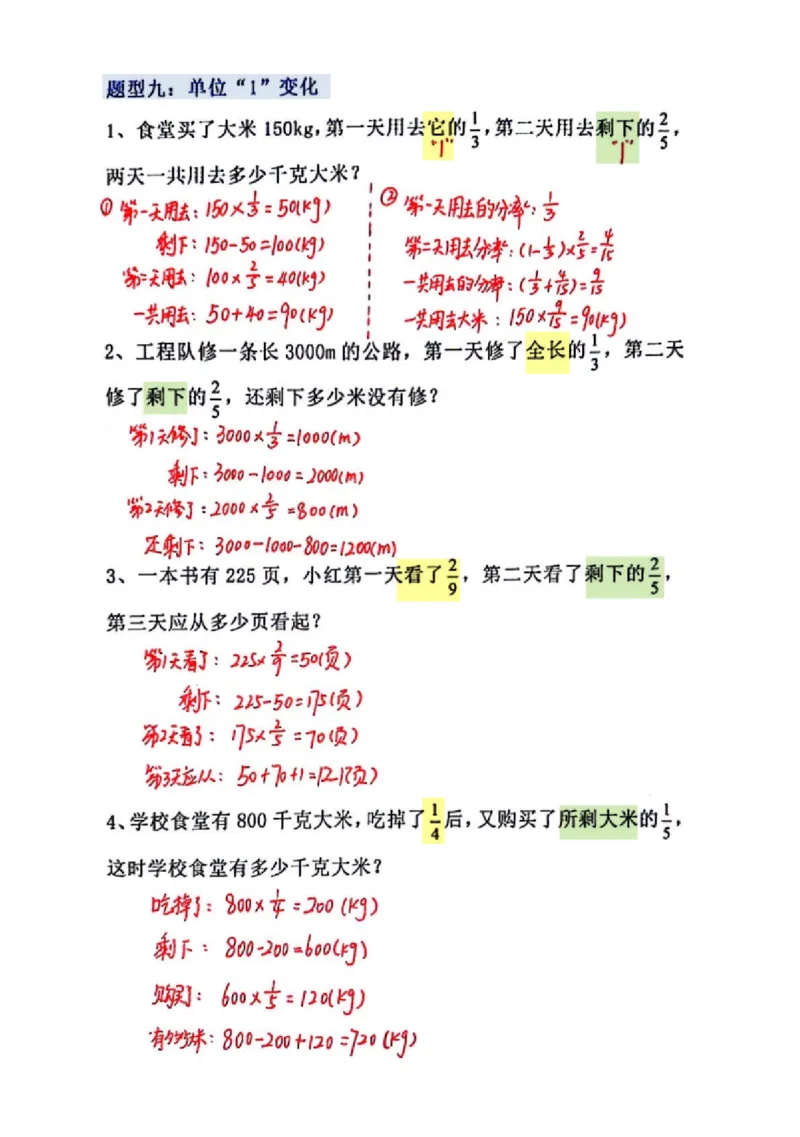 题型九：单位“1”变化
1、食堂买了大米 150kg，第一天用去它的 1/3，第二天用去剩下的 2/5，
“1” “1”
两天一共用去多少千克大米？
① 第一天用去：150×1/3=50(kg)
剩下：150-50=100(kg)
第二天用去：100×2/5=40(kg)
一共用去：50+40=90(kg)
② 第一天用去的分率：1/3
第二天用去分率：(1-1/3)×2/5=4/15
一共用去的分率：(1/3+4/15)=9/15
一共用去大米：150×9/15=90(kg)
2、工程队修一条长 3000m 的公路，第一天修了全长的 1/3，第二天
修了剩下的 2/5，还剩下多少米没有修？
第1天修了：3000×1/3=1000(m)
剩下：3000-1000=2000(m)
第2天修了：2000×2/5=800(m)
还剩下：3000-1000-800=1200(m)
3、一本书有 225 页，小红第一天看了 2/9，第二天看了剩下的 2/5，
第三天应从多少页看起？
第1天看了：225×2/9=50(页)
剩下：225-50=175(页)
第2天看了：175×2/5=70(页)
第3天应从：50+70+1=121(页)
4、学校食堂有 800 千克大米，吃掉了 1/4 后，又购买了所剩大米的 1/5，
这时学校食堂有多少千克大米？
吃掉了：800×1/4=200(kg)
剩下：800-200=600(kg)
购买了：600×1/5=120(kg)
有多少米：800-200+120=720(kg)